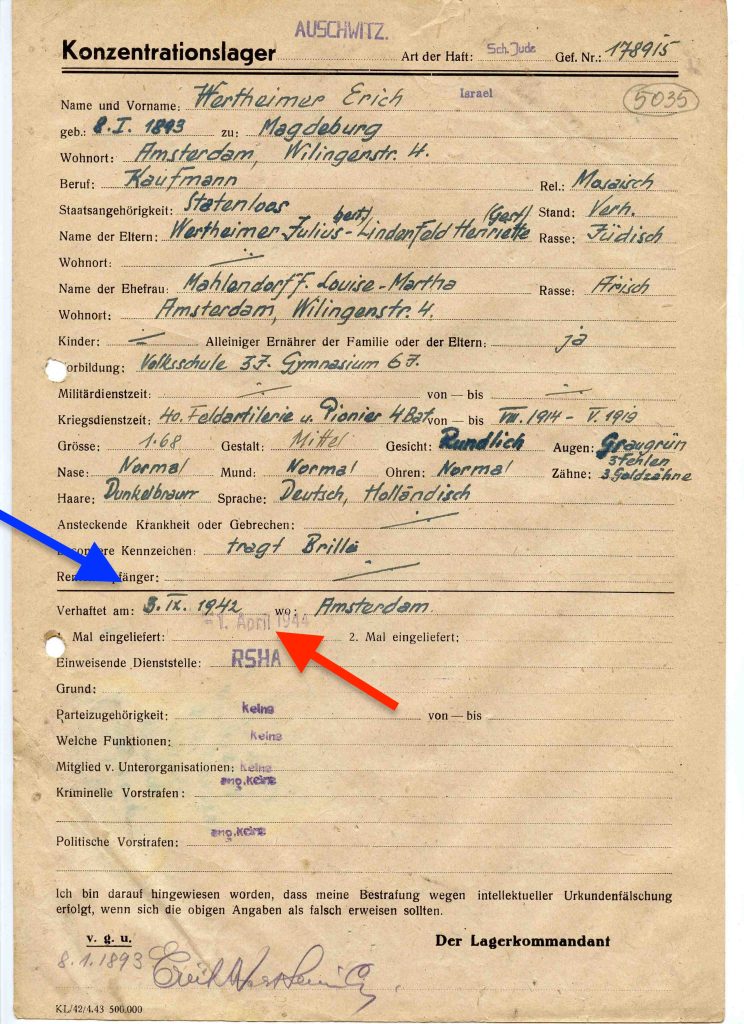 AUSCHWITZ.
Konzentrationslager Art der Haft: Sch. Jude Gef. Nr.: 178915
Israel 5035
Name und Vorname: Wertheimer Erich
geb.: 8. I. 1893 zu: Magdeburg
Wohnort: Amsterdam, Wilingenstr. 4.
Beruf: Kaufmann Rel.: Mosaisch
Staatsangehörigkeit: Statenloos Stand: Verh.
Name der Eltern: Wertheimer Julius - Lindenfeld Henriette Rasse: Jüdisch
Wohnort:
Name der Ehefrau: Mahlendorff. Louise-Martha Rasse: Arisch
Wohnort: Amsterdam, Wilingenstr. 4.
Kinder: Alleiniger Ernährer der Familie oder der Eltern: ja
Vorbildung: Volksschule 3J. Gymnasium 6J.
Militärdienstzeit: von — bis
Kriegsdienstzeit: 40. Feldartilerie u. Pionier 4 Bat. von — bis VIII. 1914 - V. 1919
Grösse: 1.68 Gestalt: Mittel Gesicht: Rundlich Augen: Graugrün
Nase: Normal Mund: Normal Ohren: Normal Zähne: 3 Fehlen
3. Goldzähne
Haare: Dunkelbraun Sprache: Deutsch, Holländisch
Ansteckende Krankheit oder Gebrechen:
Besondere Kennzeichen: tragt Brille
Rentenempfänger:
Verhaftet am: 3. IX. 1942 wo: Amsterdam
-1. April 1944
Mal eingeliefert: 2. Mal eingeliefert:
Einweisende Dienststelle: RSHA
Grund:
Parteizugehörigkeit: Keine von — bis
Welche Funktionen: Keine
Mitglied v. Unterorganisationen: Keine
ang. Keine
Kriminelle Vorstrafen:
ang. Keine
Politische Vorstrafen:
Ich bin darauf hingewiesen worden, dass meine Bestrafung wegen intellektueller Urkundenfälschung
erfolgt, wenn sich die obigen Angaben als falsch erweisen sollten.
v. g. u. Der Lagerkommandant
8.1.1893 Erich Wertheimer
KL/42/4.43 500.000